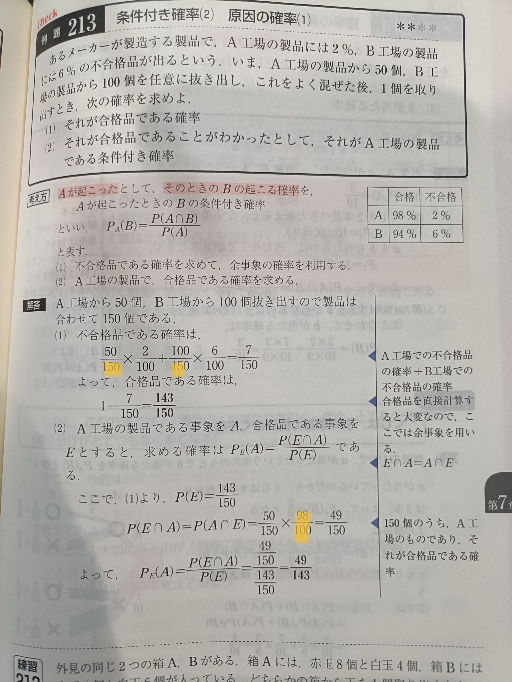 check
例題 213 条件付き確率(2) 原因の確率(1) ****
あるメーカーが製造する製品で，A工場の製品には2%，B工場の製品
には6%の不合格品が出るという．いま，A工場の製品から50個，B工
場の製品から100個を任意に抜き出し，これをよく混ぜた後，1個を取り
出すとき，次の確率を求めよ．
(1) それが合格品である確率
(2) それが合格品であることがわかったとして，それがA工場の製品
である条件付き確率
考え方 Aが起こったとして，そのときのBの起こる確率を，
Aが起こったときのBの条件付き確率
といい，P_A(B)=P(A∩B)/P(A)
と表す．
(1) 不合格品である確率を求めて，余事象の確率を利用する．
(2) A工場の製品で，合格品である確率を求める．
合格 不合格
A 98% 2%
B 94% 6%
解答 A工場から50個，B工場から100個抜き出すので製品は
合わせて150個である．
(1) 不合格品である確率は，
50/150×2/100+100/150×6/100=7/150
よって，合格品である確率は，
1-7/150=143/150
(2) A工場の製品である事象をA，合格品である事象を
Eとすると，求める確率は P_E(A)=P(E∩A)/P(E) であ
る．
ここで，(1)より，P(E)=143/150
P(E∩A)=P(A∩E)=50/150×98/100=49/150
よって，P_E(A)=P(E∩A)/P(E)=(49/150)/(143/150)=49/143
A工場での不合格品
の確率＋B工場での
不合格品の確率
合格品を直接計算す
ると大変なので，こ
こでは余事象を用い
る．
E∩A=A∩E
150個のうち，A工
場のものであり，そ
れが合格品である確
率
第7章
練習
213 外見の同じ2つの箱A，Bがある．箱Aには，赤玉8個と白玉4個，箱Bには